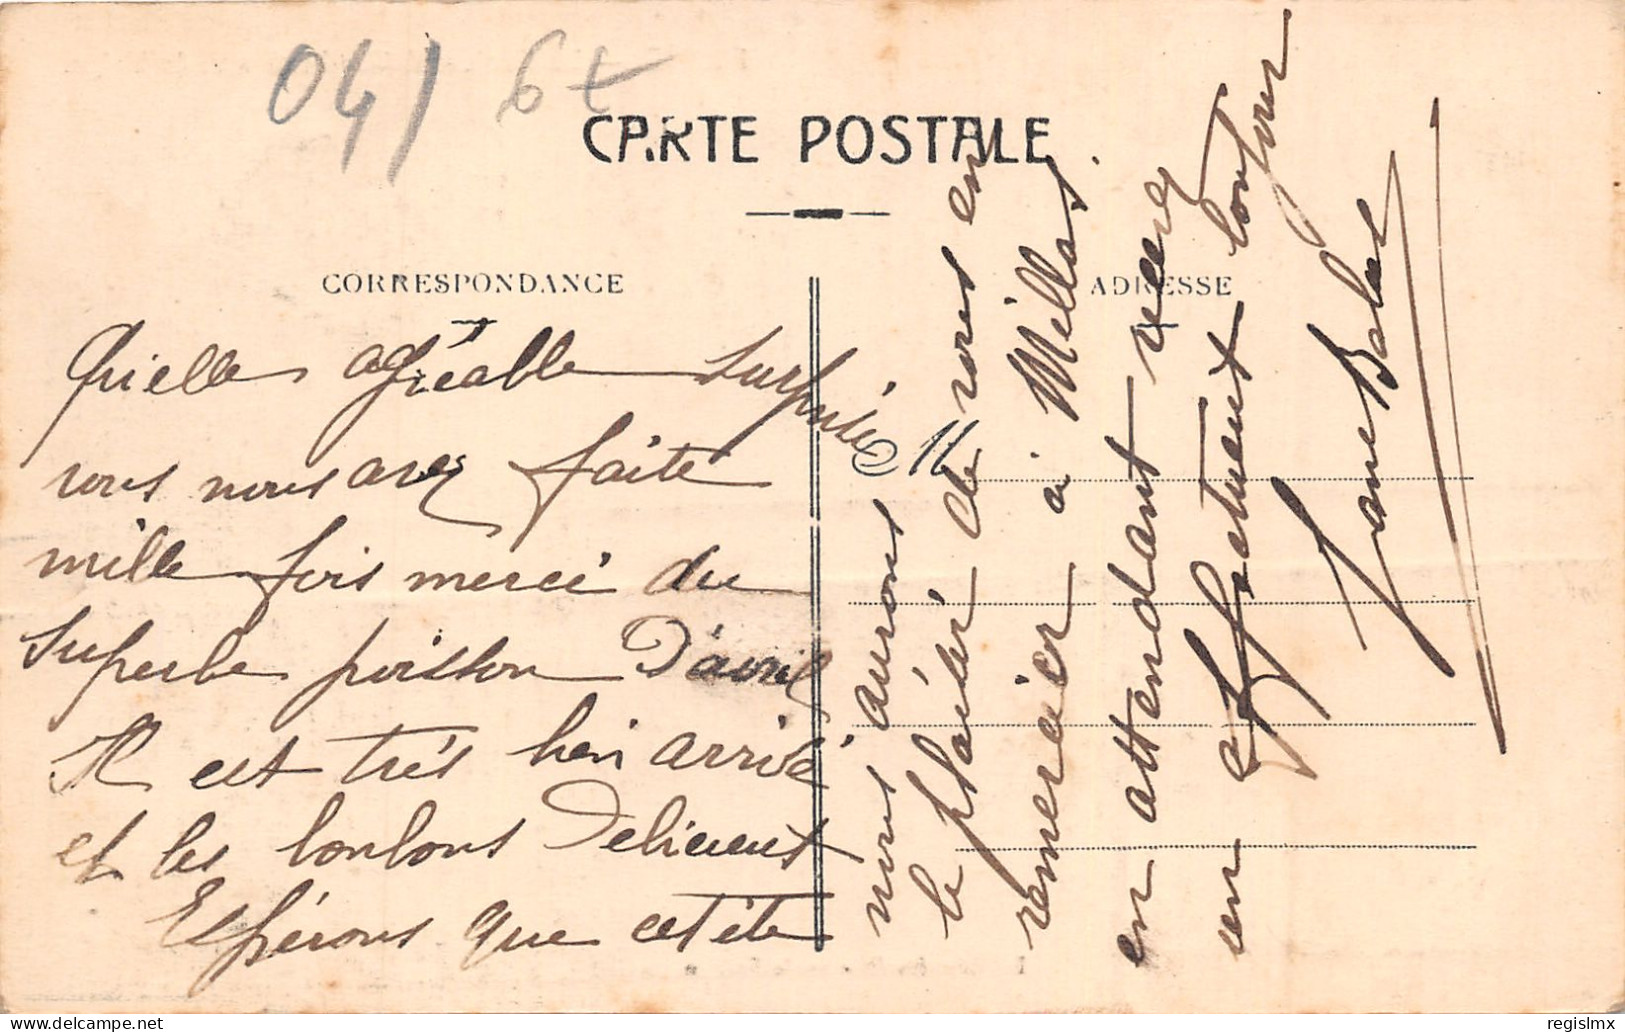 04) 6t
CARTE POSTALE
CORRESPONDANCE
ADRESSE
Quielle agréable surprise
vous nous avez faite
mille fois merci du
superbe poisson D'avril
Il est trés bien arrivé
et les bonbons Delicieux
Espérons que cet été
nous aurons
le plaisir de vous en
remercier à Millas
en attendant recevez
un affectueux bonjour
Jane
regislmx